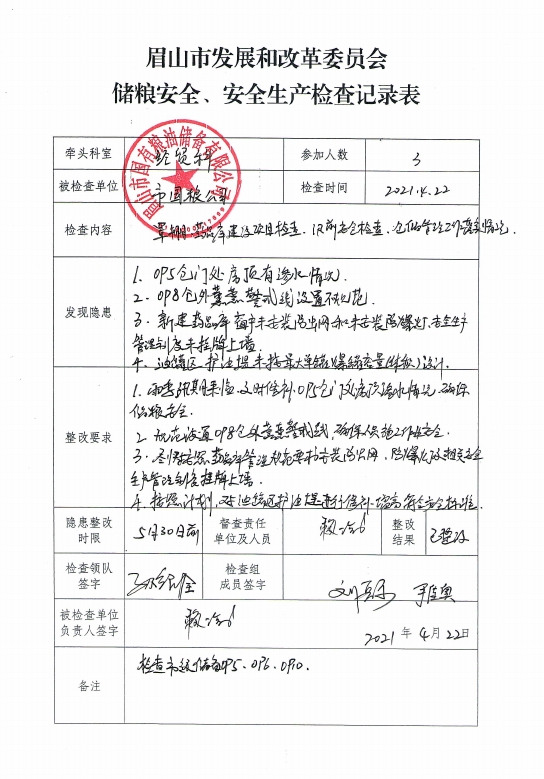 眉山市发展和改革委员会
储粮安全、安全生产检查记录表
牵头科室 经贸科 参加人数 3
眉山市国有粮油储备有限公司
被检查单位 市国粮公司 检查时间 2021.4.22
检查内容 罩棚 药品库建设项目检查、汛前安全检查、仓储管理工作落实情况
发现隐患
1. 095仓门处房顶有渗水情况.
2. 098仓外熏蒸警戒线设置不规范.
3. 新建药品库窗户未安装防虫网和未安装防爆灯,安全生产
管理制度未挂牌上墙.
4. 油罐区护油堤未按最大单罐(罐容量)设计.
整改要求
1. 雨季汛期来临,及时维补095仓门处房顶渗水情况,确保
储粮安全.
2. 规范设置098仓外熏蒸警戒线,确保人员工作安全.
3. 药品库管理规范要求安装防虫网,防爆灯及相关安全
生产管理制度挂牌上墙.
4. 按照计划,对油罐区护油堤进行维补 符合安全标准.
隐患整改
时限 5月30日前 督查责任
单位及人员 整改
结果 已整改
检查领队
签字 检查组
成员签字
被检查单位
负责人签字 2021年4月22日
备注 检查市级储备095、096、090.